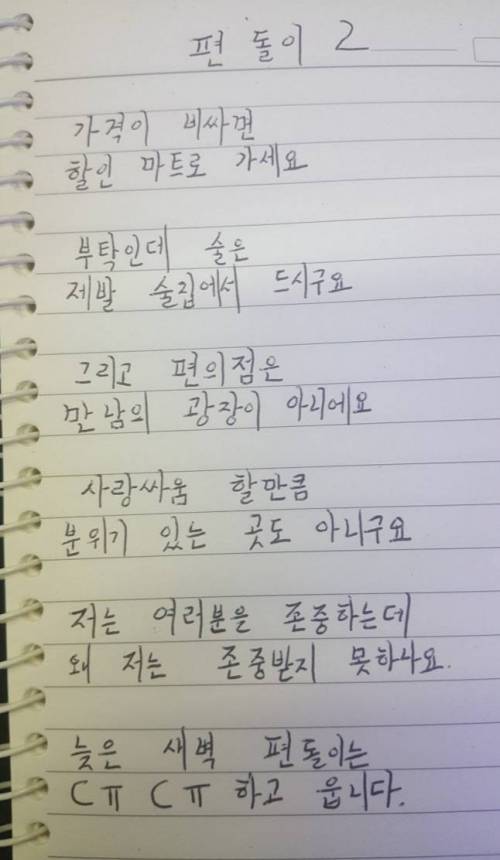 편 돌이 2
가격이 비싸면
할인 마트로 가세요
부탁인데 술은
제발 술집에서 드시구요
그리고 편의점은
만남의 광장이 아니에요
사랑싸움 할만큼
분위기 있는 곳도 아니구요
저는 여러분을 존중하는데
왜 저는 존중받지 못하나요.
늦은 새벽 편돌이는
ㄷㅠ ㄷㅠ 하고 웁니다.